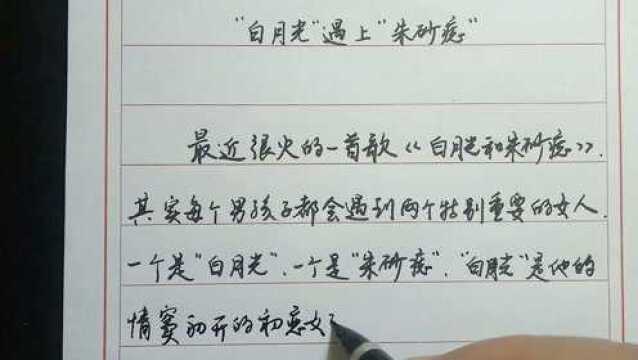 “白月光”遇上“朱砂痣”
最近很火的一首歌《白月光和朱砂痣》.
其实每个男孩子都会遇到两个特别重要的女人.
一个是“白月光”、一个是“朱砂痣”.“白月光”是他的
情窦初开的初恋女